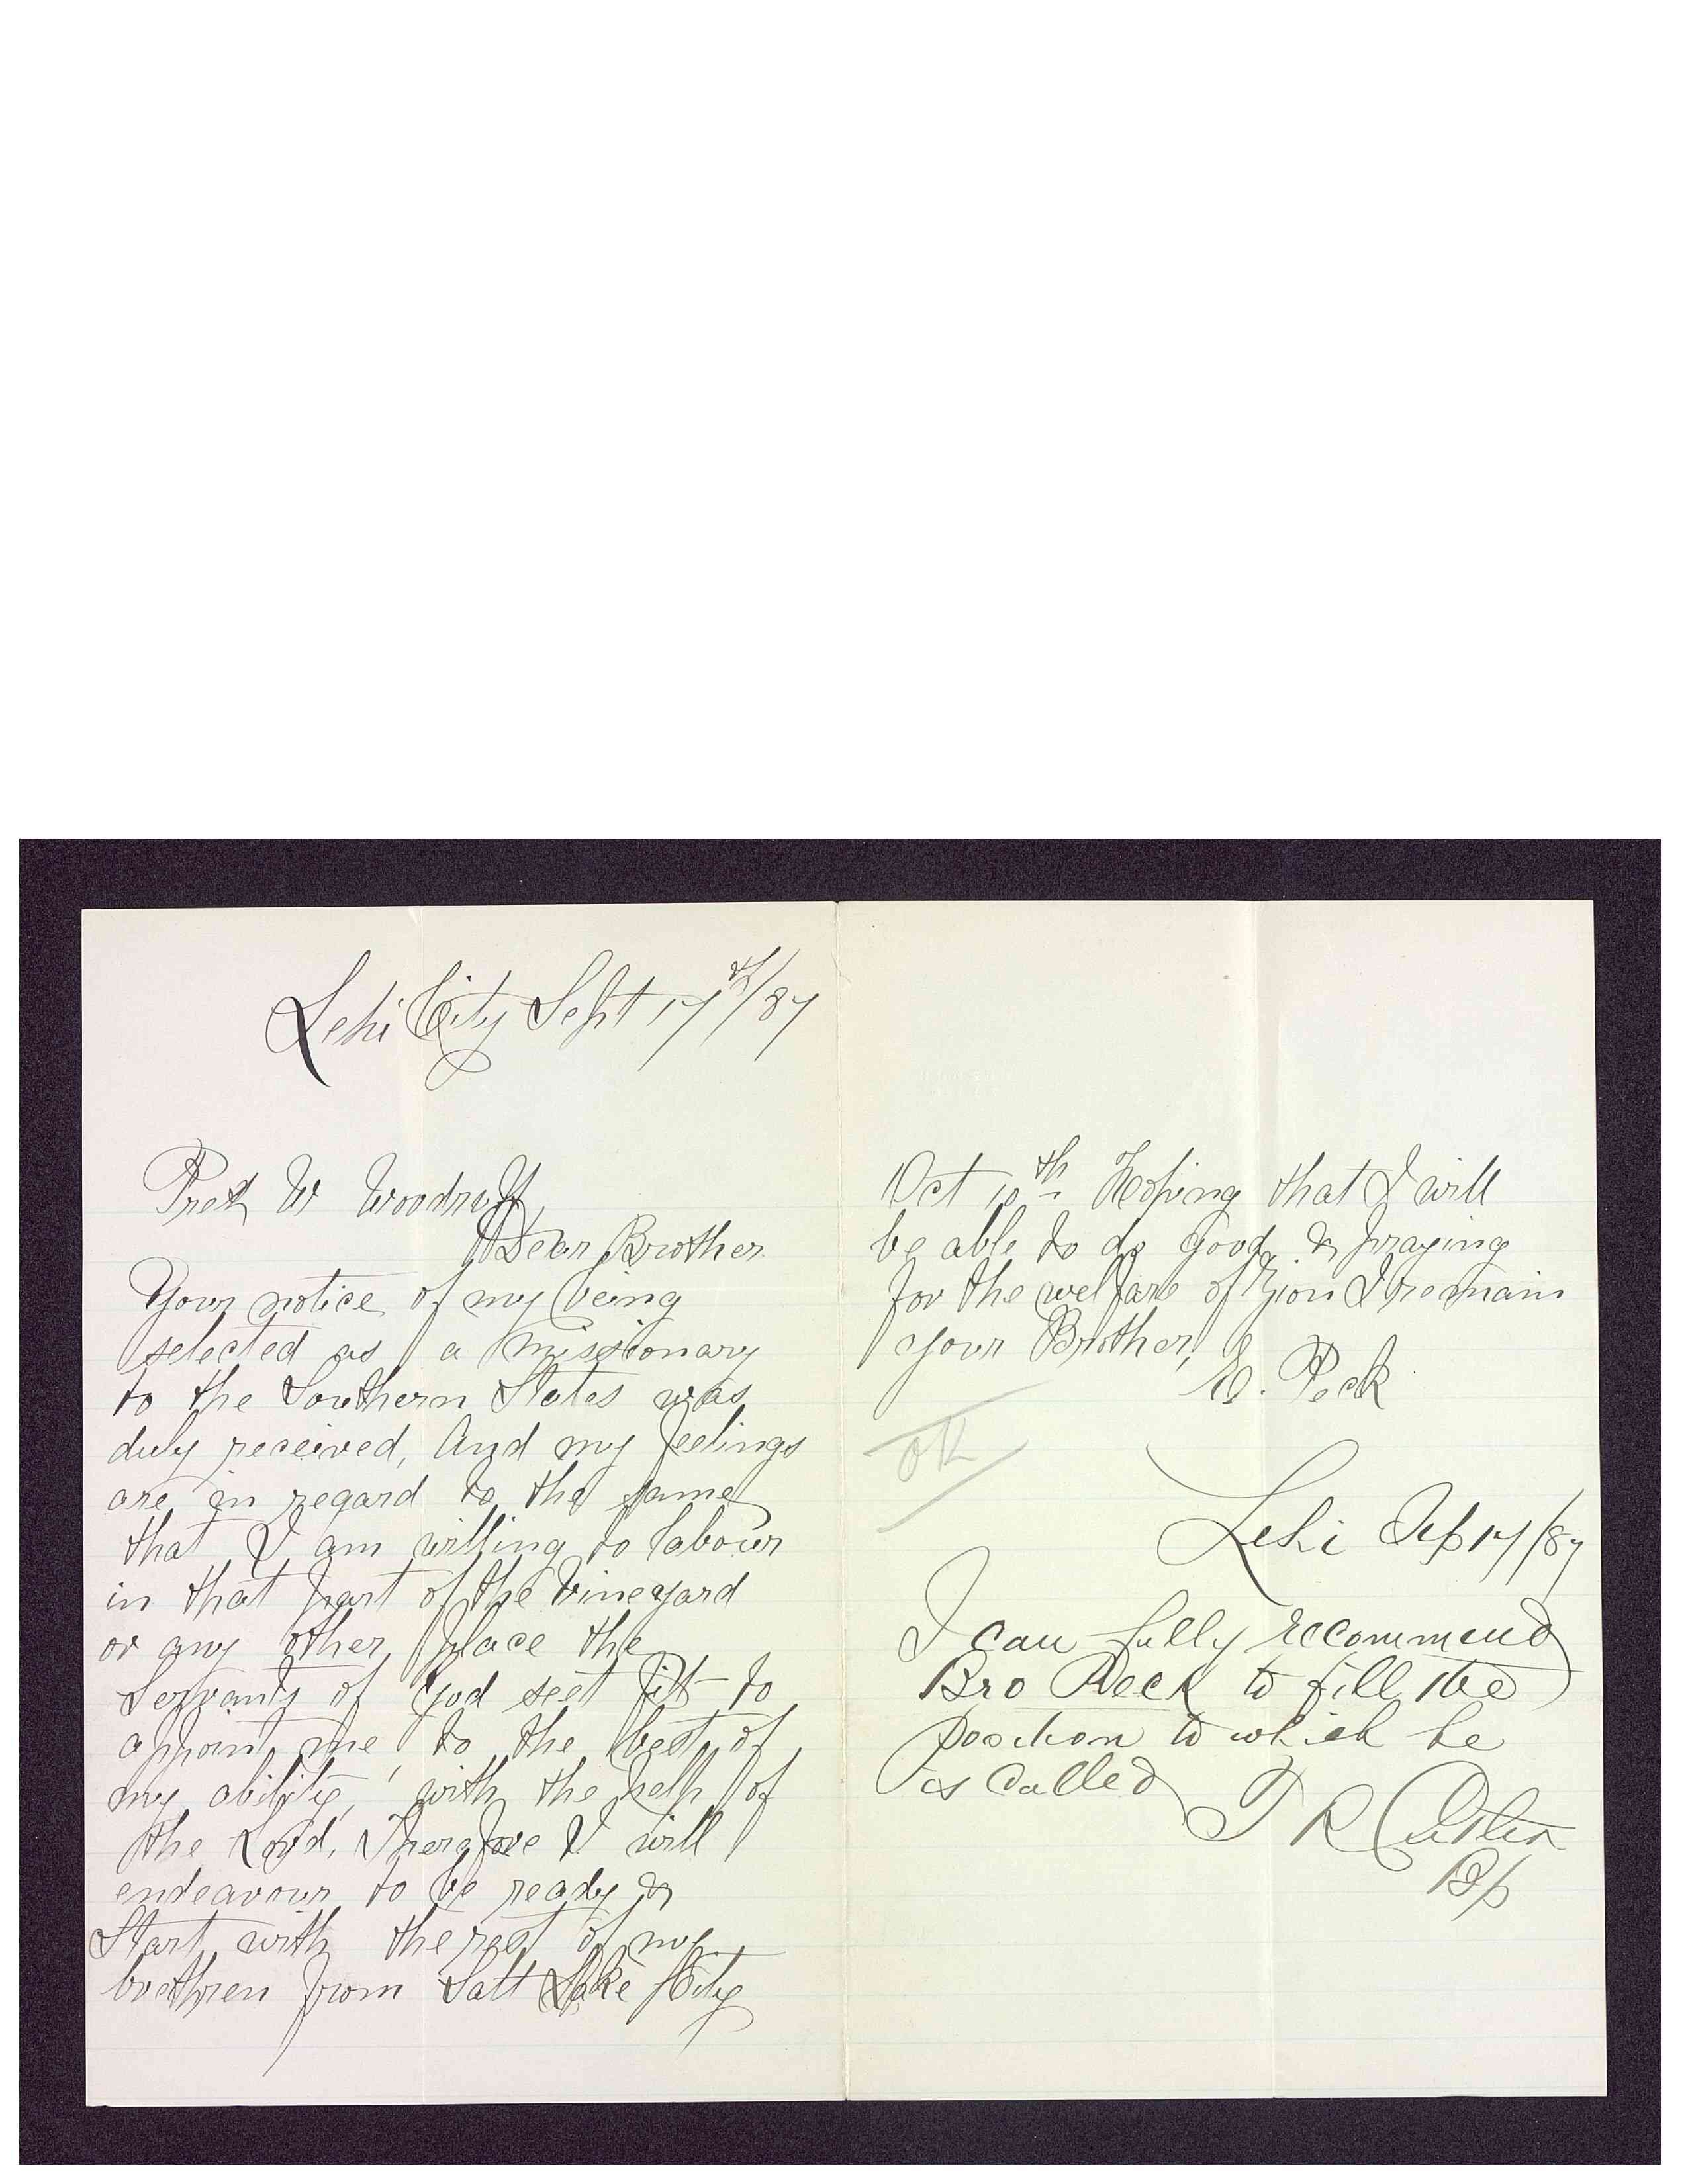 Lehi City Sept 17th/87
Prest W Woodruff,
Dear Brother
Your notice of my being
selected as a missionary
to the Southern States was
duly received, And my feelings
are in regard to the same
that I am willing to labour
in that part of the Vineyard
or any other place the
Servants of God seet fit to
appoint me, to the best of
my ability, with the help of
the Lord, Therefore I will
endeavour to be ready &
Start with the rest of my
brethren from Salt Lake City
Oct 10th Hoping that I will
be able to do good & praying
for the welfare of Zion I remain
your Brother,
E. Peck
OK
Lehi Sep 17/87
I can fully recommend
Bro Peck to fill the
position to which he
is called T R Cutler
Bp